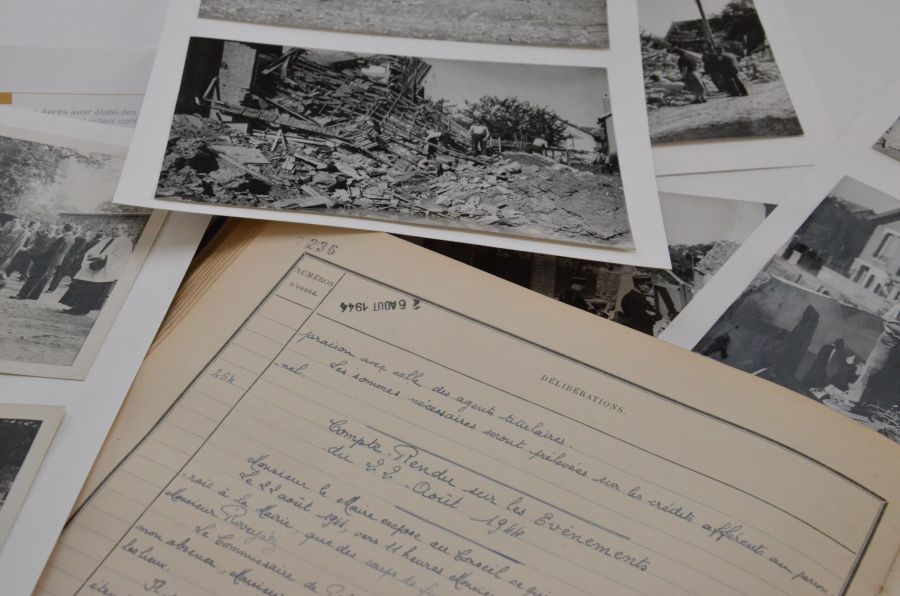 Après avoir établi des
Leclerc cont
235
NUMÉROS
D'ORDRE.
26 AOUT 1944
DÉLIBÉRATIONS.
paraison avec celle des agents titulaires.
Les sommes nécessaires seront prélevées sur les crédits afférents au person
nel.
254
Compte-Rendu sur les Evènements
du 22 Août 1944
Monsieur le Maire expose au Conseil ce qui
Le 22 août 1944, vers 11 heures Monsieur
rait à la Mairie, que des coups de
Monsieur
Le Commissaire de
mon absence, Monsieur
les lieux.